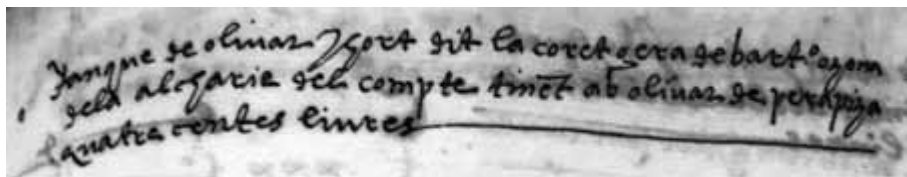 tanque de olivar y hort dit la coret q era de bart.o ozona
dela alcharie del compte tinēt ab olivar de perapiza
quatre centes liures